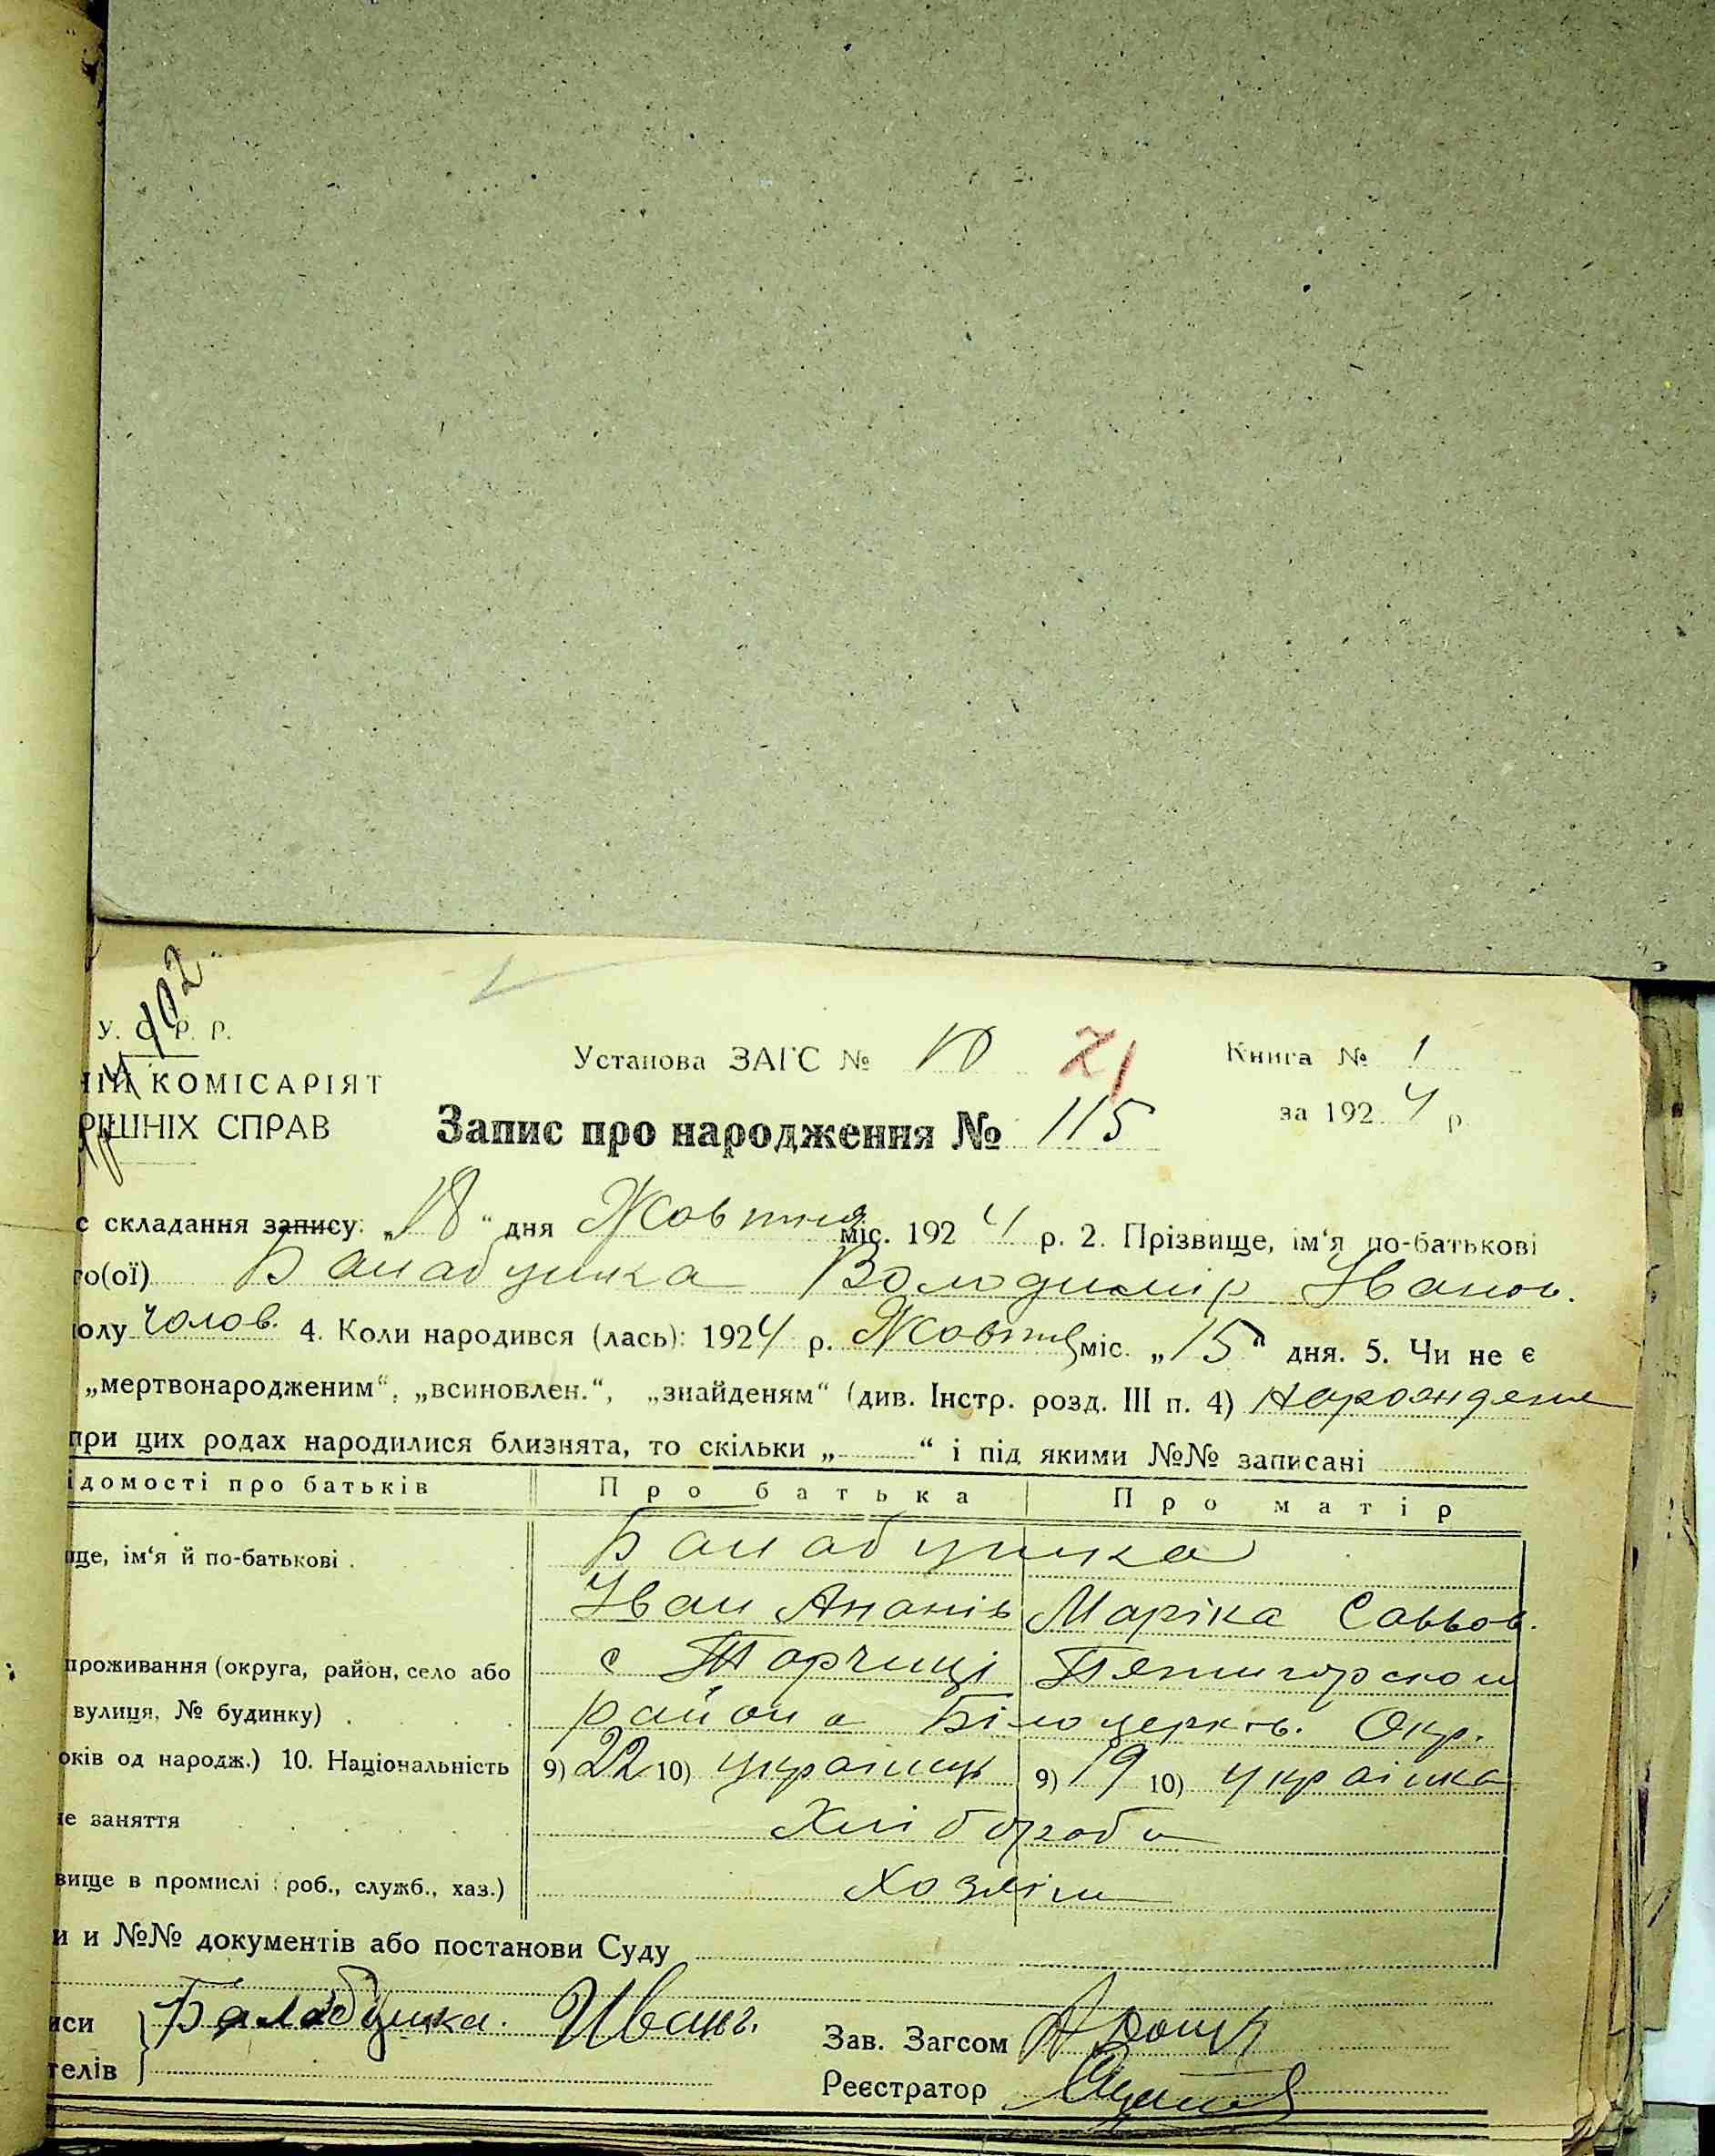 402
У. С. Р. Р.
Установа ЗАГС № 10 21 Книга № 1
ІЙ КОМІСАРІЯТ
РІШНІХ СПРАВ
Запис про народження № 115 за 1924 р.
с складання запису: „18“ дня Жовтня міс. 1924 р. 2. Прізвище, ім‘я по-батькові
го(ої) Балабушка Володимір Іванов.
олу чолов. 4. Коли народився (лась): 1924 р. Жовтня міс. „15“ дня. 5. Чи не є
„мертвонародженим“, „всиновлен.“, „знайденям“ (див. Інстр. розд. III п. 4)
при цих родах народилися близнята, то скільки „ “ і під якими №№ записані
ідомості про батьків Про батька Про матір
ще, ім‘я й по-батькові . Балабушка
Іван Ананів Маріка Саввов.
проживання (округа, район, село або с Торчиці Пятигорском
вулиця, № будинку) . района Білоцерків. Окр.
оків од народж.) 10. Національність 9) 22 10) українць 9) 19 10) українка
не заняття Хліборобы
вище в промислі : роб., служб., хаз.) Хозяіи
и и №№ документів або постанови Суду
иси Балабушка. Иванъ.
Зав. Загсом
телів
Реєстратор